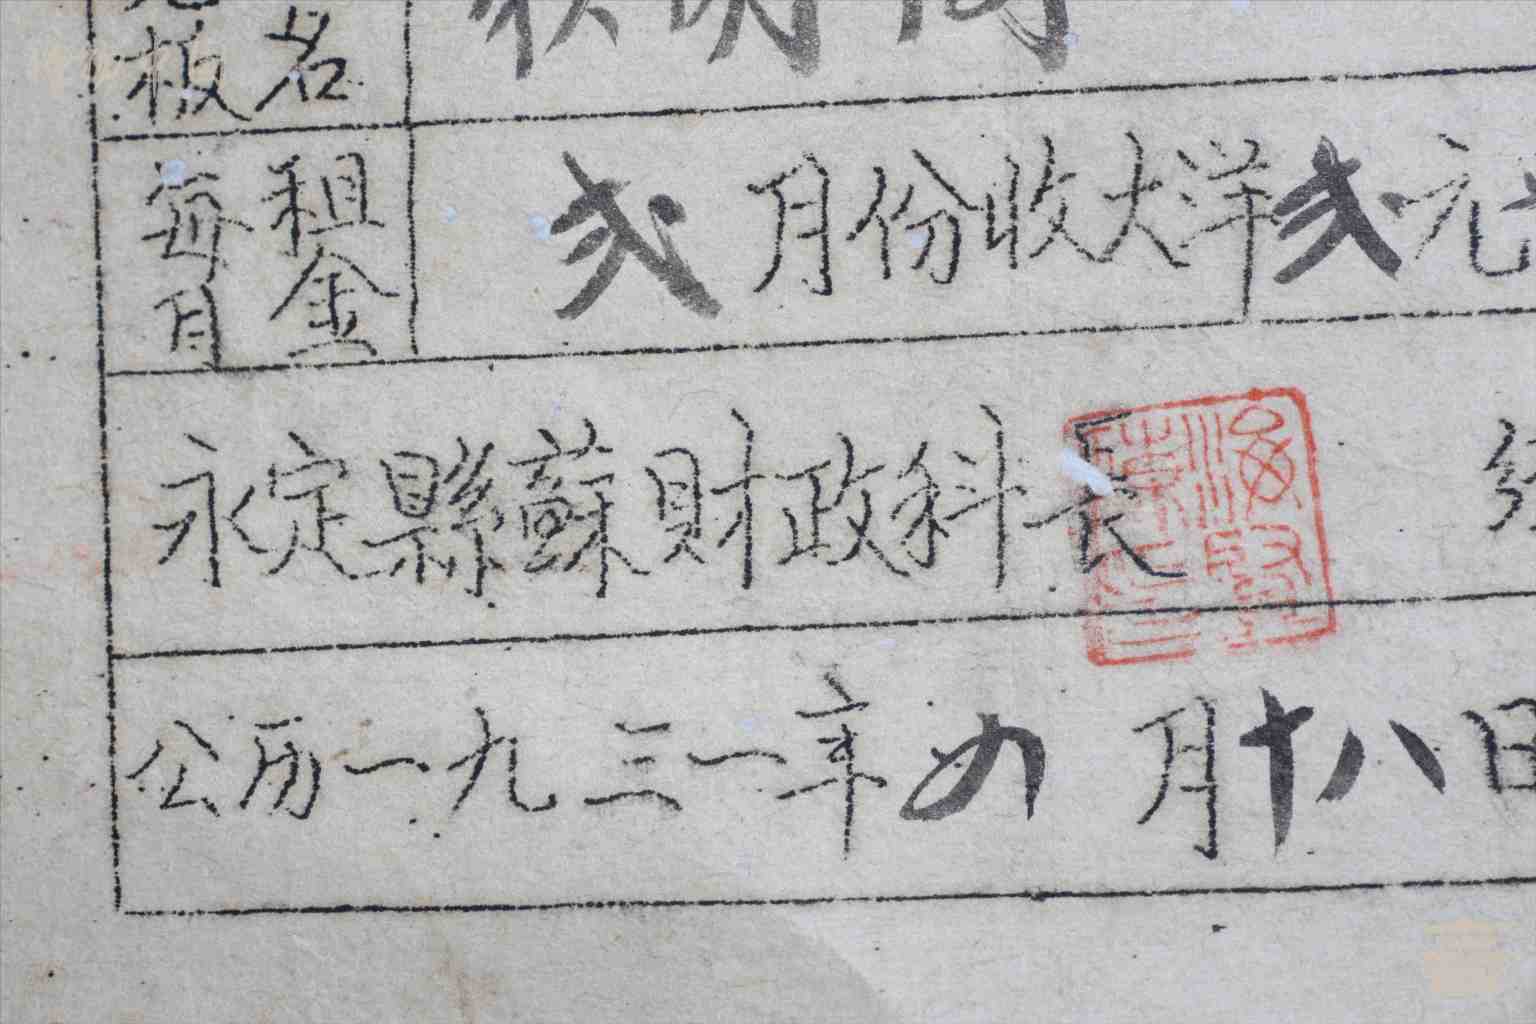 板 名
每月 租金 弍 月份收大洋弍元
永定縣蘇財政科長
公历一九三一年四月十八日